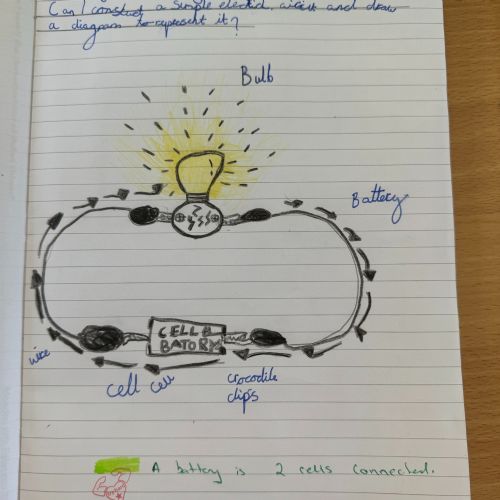 Can I construct a simple electrical circuit and draw
a diagram to represent it?
Bulb
Battery
CELL &
BATORY
wire
cell cell
crocodile
clips
A battery is 2 cells connected.